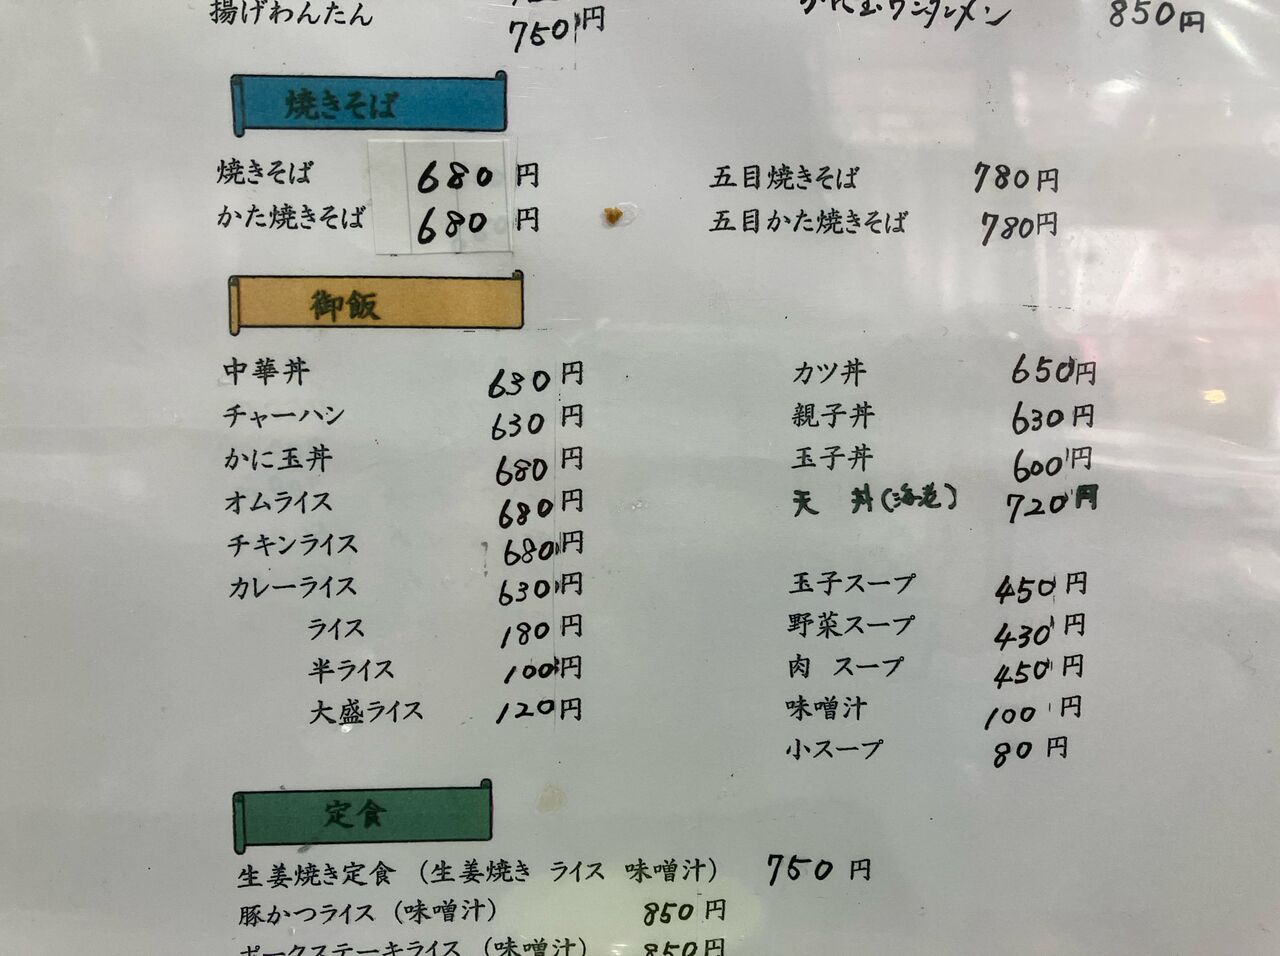 揚げわんたん 750円
かに玉ワンタンメン 850円
焼きそば
焼きそば 680円
かた焼きそば 680円
五目焼きそば 780円
五目かた焼きそば 780円
御飯
中華丼 630円
チャーハン 630円
かに玉丼 680円
オムライス 680円
チキンライス 680円
カレーライス 630円
ライス 180円
半ライス 100円
大盛ライス 120円
カツ丼 650円
親子丼 630円
玉子丼 600円
天 丼(海老) 720円
玉子スープ 450円
野菜スープ 430円
肉 スープ 450円
味噌汁 100円
小スープ 80円
定食
生姜焼き定食（生姜焼き ライス 味噌汁） 750円
豚かつライス（味噌汁） 850円
ポークステーキライス（味噌汁） 850円